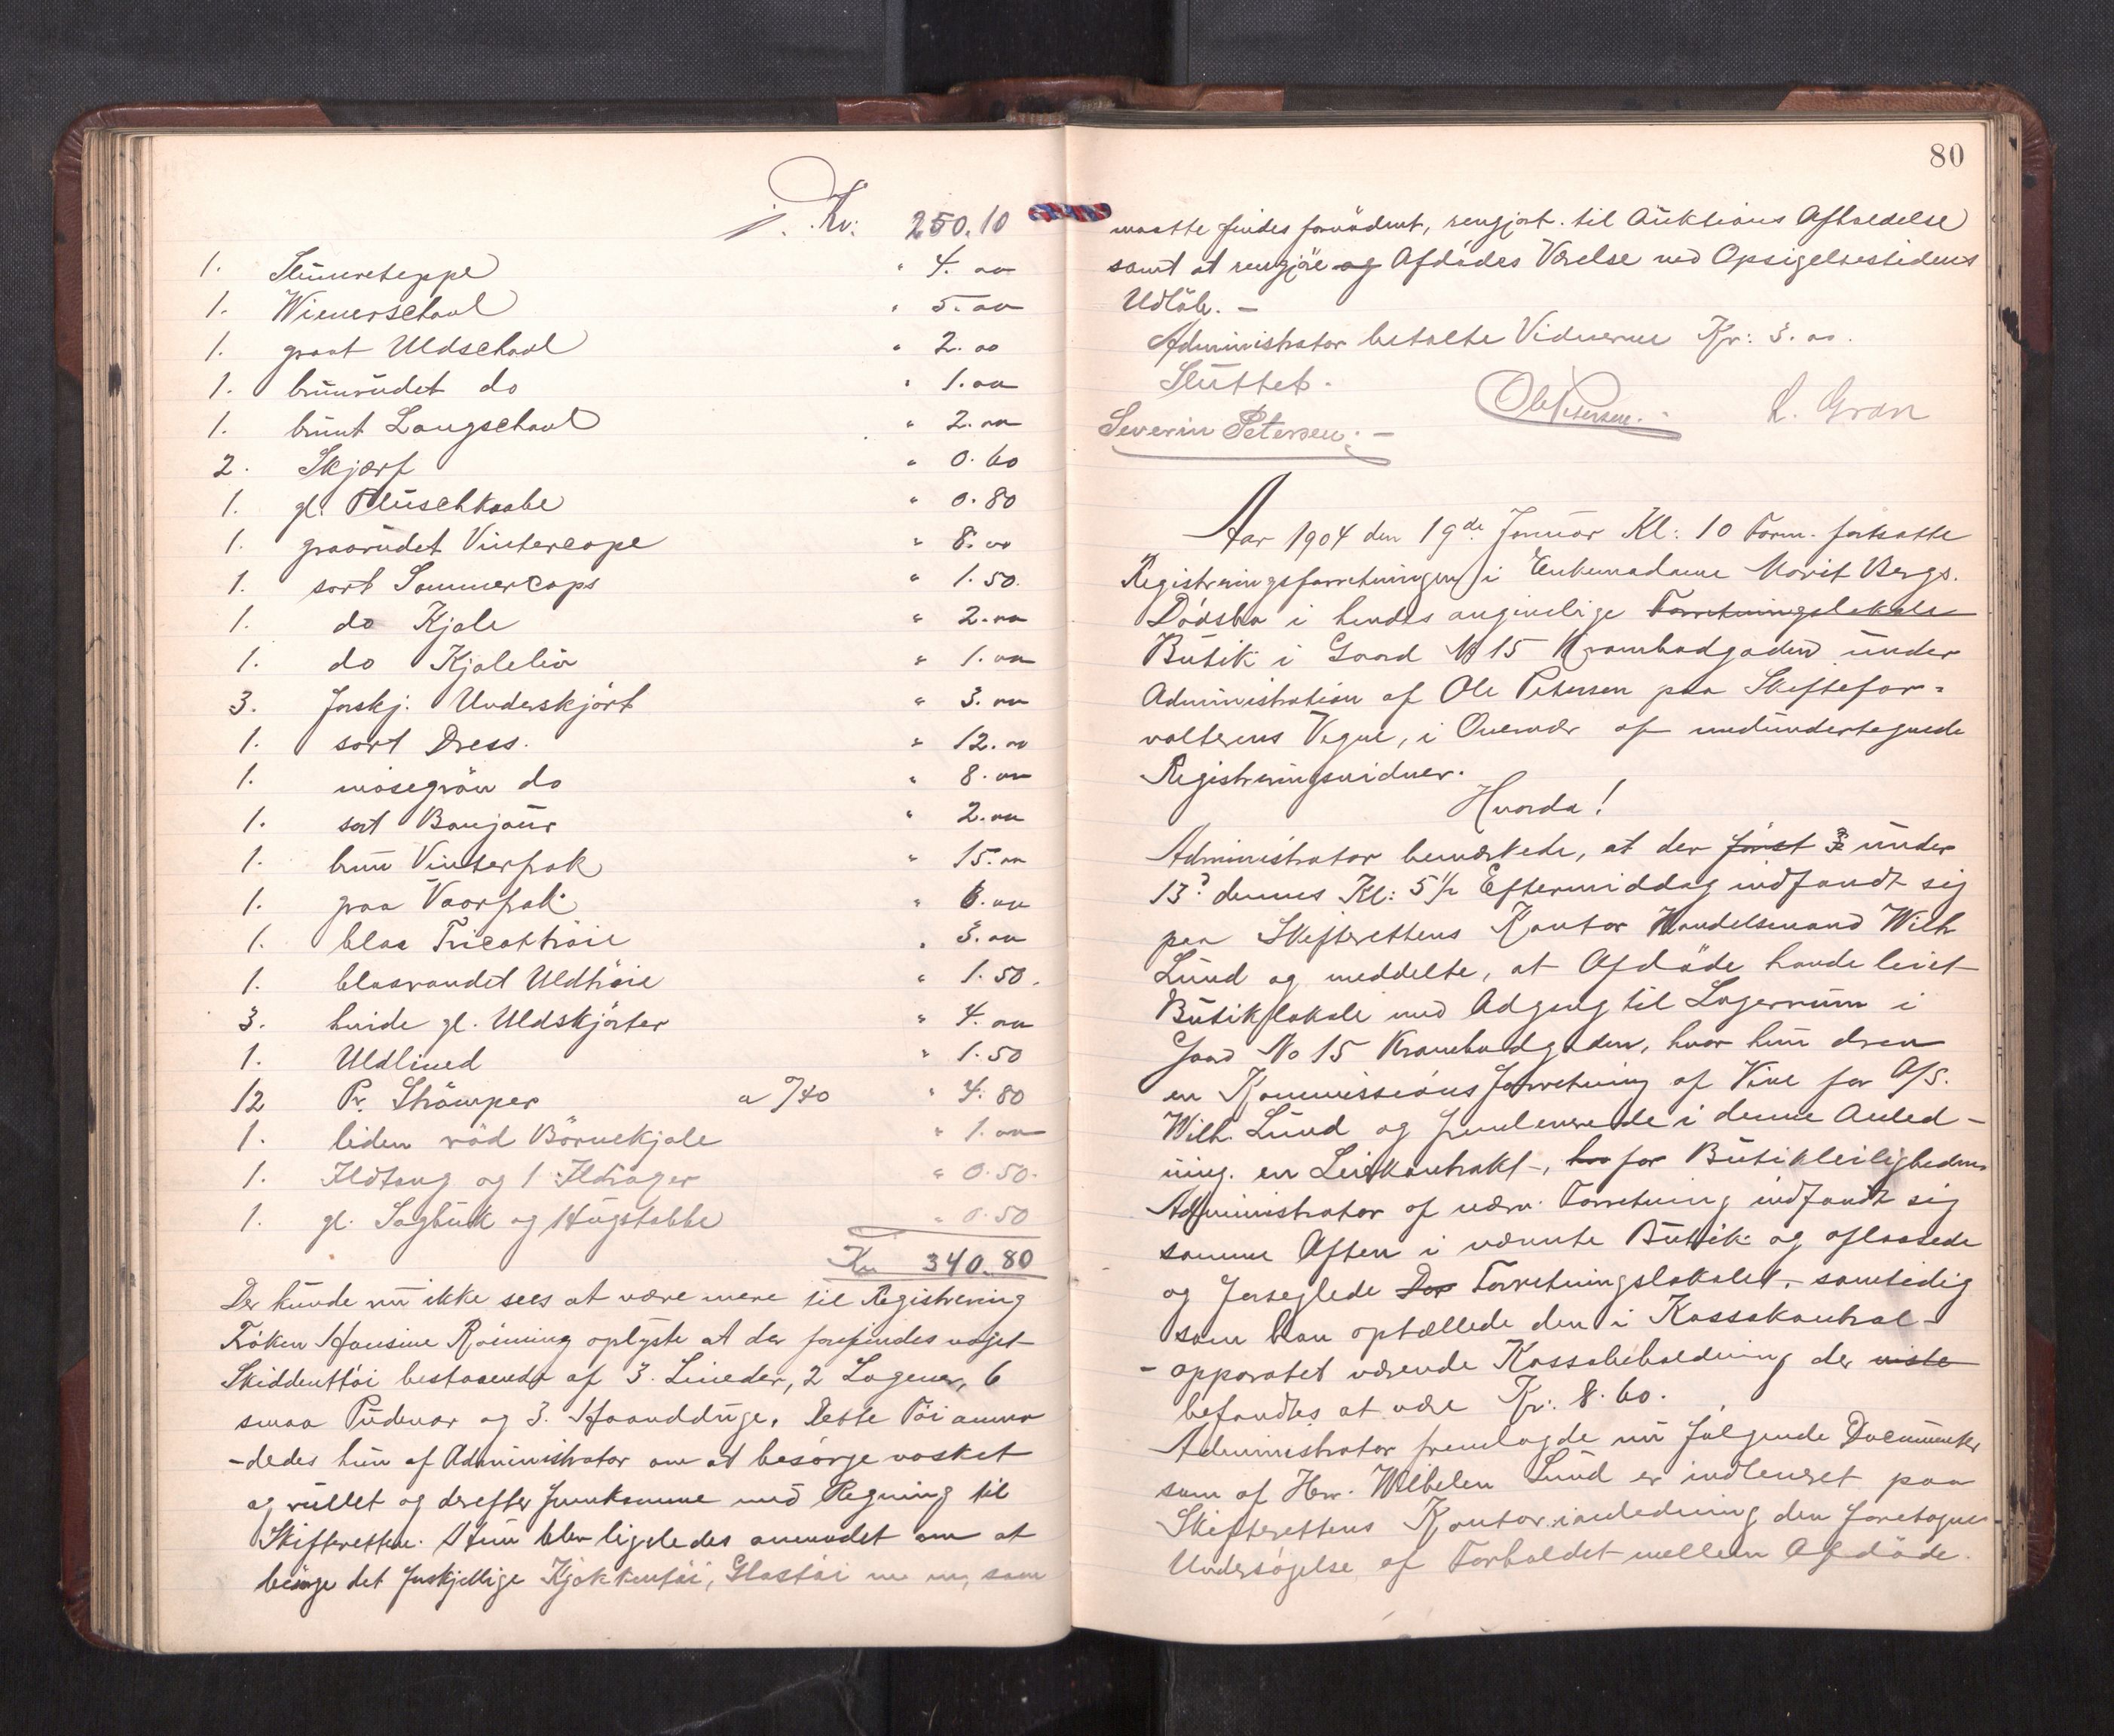 Kr. 250.10
1. Slumreteppe " 4.00
1. Wienerschaul " 5.00
1. graat Uldschaul " 2.00
1. brunrudet do " 1.00
1. brunt Langschaul " 2.00
2. Skjærf " 0.60
1. gl. Pluschkaabe " 0.80
1. graarudet Vintercape " 8.00
1. sort Sommercaps " 1.50.
1. do Kjole " 2.00
1. do Kjoleliv " 1.00
3. forskj. Underskjört " 3.00
1. sort Dress. " 12.00
1. mosegrön do " 8.00
1. sort Bonjour " 2.00
1. brun Vinterfrak " 15.00
1. graa Vaarfrak " 6.00
1. blaa Tricottröie " 3.00
1. blaarandet Uldtröie " 1.50.
3. hvide gl. Uldskjorter " 4.00
1. Uldlined " 1.50
12 Pr. Strömper a "/40 " 4.80
1. liden röd Börnekjole " 1.00
1. Ildtang og 1 Ildrager " 0.50.
1. gl. Sagbuk og 1 Hugstabbe " 0.50
Kr 340.80
Der kunde nu ikke sees at være mere til Registrering
Fröken Hansine Röining oplyste at der forefindes noget
Skiddenttöi bestaaende af 3. Lineder, 2 Lagener, 6
smaa Puder og 3. Haandduge. Dette Töi anmo
-dedes hun af Administrator om at besörge vasket
og rullet og derefter fremkomme med Regning til
Skifteretten. Hun blev ligeledes anmodet om at
besörge det forskjellige Kjökkentöi, Glastöi m m, som
80
maatte findes fornödent, rengjort til Auktions Afholdelse
samt at rengjöre og Afdödes Værelse ved Opsigelsestidens
Udlöb. -
Administrator betalte Vidnerne Kr: 3.00.
Sluttet.
Ole Petersen. L. Gran
Severin Petersen. -
Aar 1904 den 19de Januar Kl: 10 Form. fortsatte
Registreringsforretningen i Enkemadame Marit Bergs.
Dödsbo i hendes angivelige Forretningslokale
Butik i Gaard No 15 Krambodgaden under
Administration af Ole Petersen paa Skiftefor-
valterens Vegne, i Overvær af medundertegnede
Registreringsvidner.
Hvorda!
Administrator bemærkede, at der först under
13de dennes Kl: 5½ Eftermiddag indfandt sig
paa Skifterettens Kontor Handelsmand Wilh
Lund og meddelte, at Afdöde havde leiet
Butiklokale med Adgang til Lagerrum i
Gaard No 15 Krambodgaden, hvor hun drev
en Kommissions forretning af Vine for A/S.
Wilh. Lund og fremleverede i denne Anled-
ning. en Leiekontrakt, for Butikleiligheden.
Administrator af nærv. Forretning indfandt sig
samme Aften i nævnte Butik og aflaasede
og forseglede Forretningslokalet, samtidig
som han optællede den i Kassakontrol-
-apparatet værende Kassabeholdning der viste
befandtes at være Kr: 8.60.
Administrator fremlagde nu fölgende Documenter
som af Herr. Wilhelm Lund er indleveret paa
Skifterettens Kontor i anledning den foretagne
Undersögelse af Forholdet mellem Afdöde.